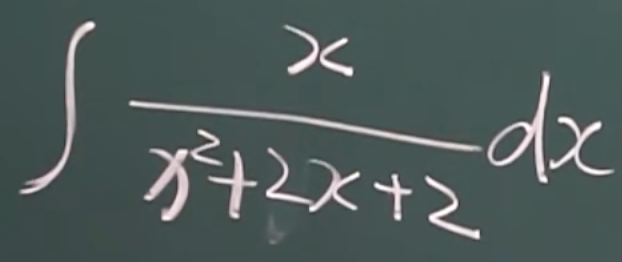 ∫ x/(x²+2x+2) dx